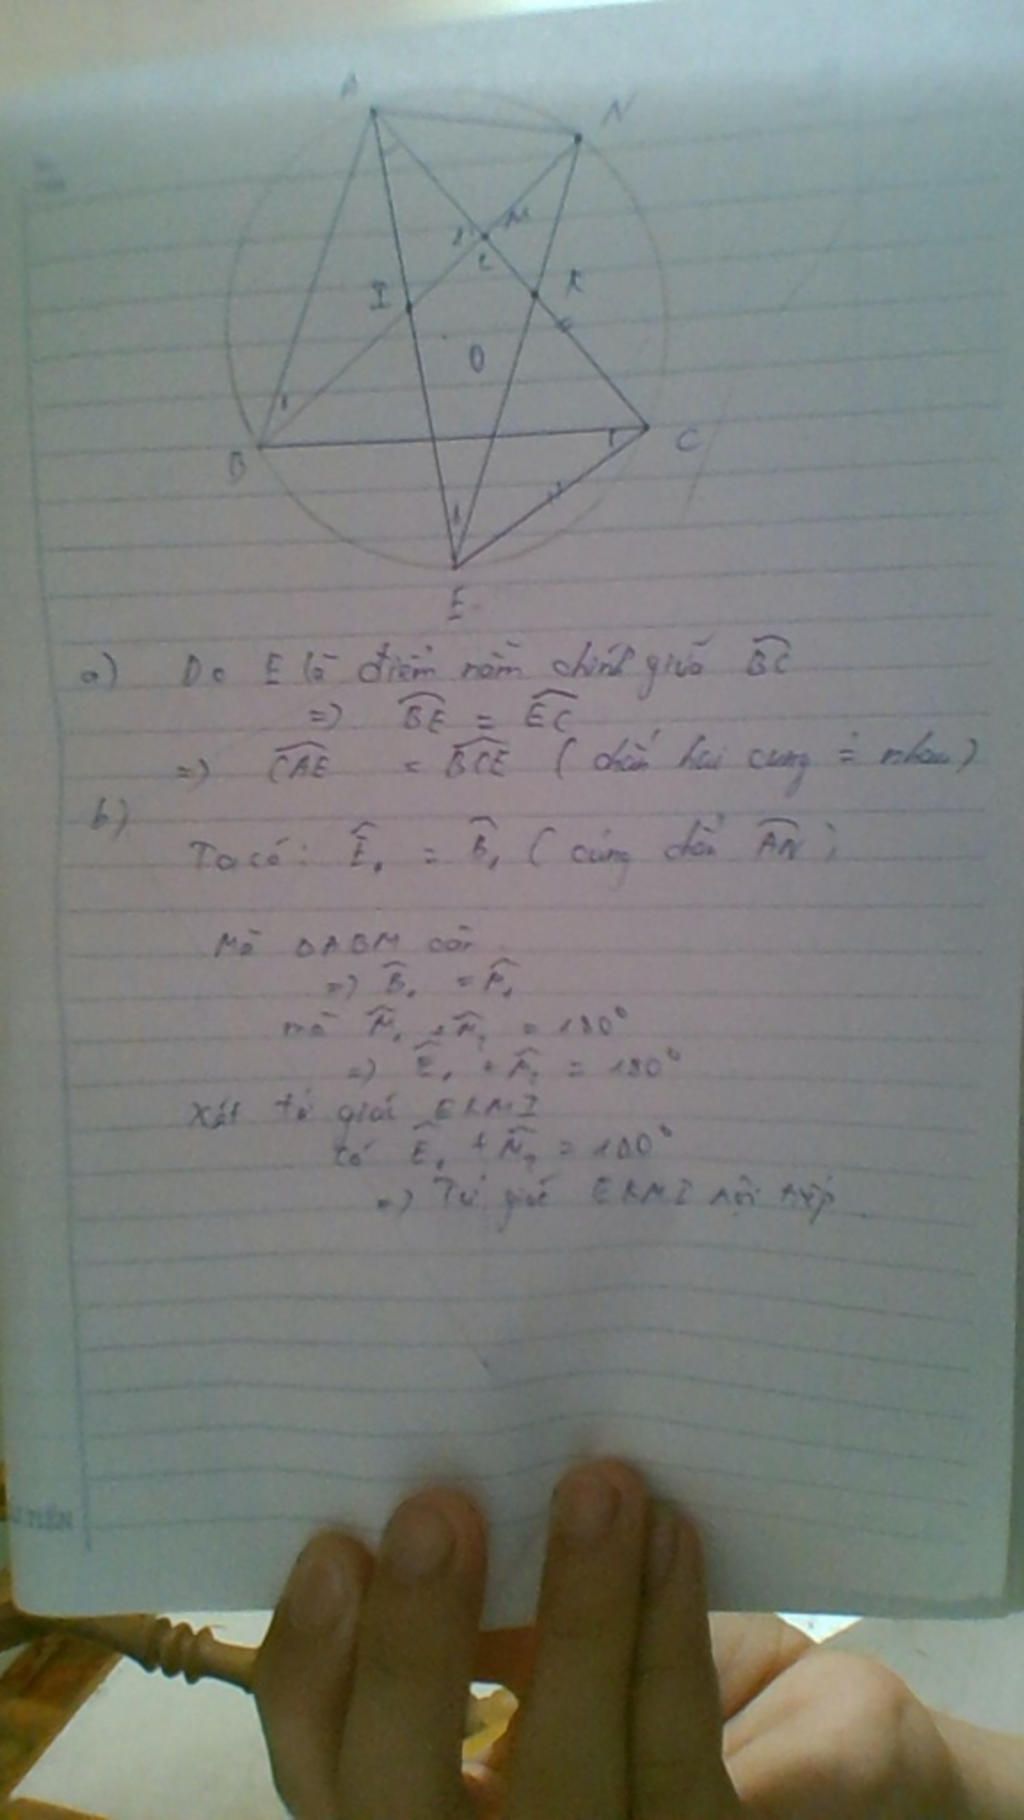 A
N
M
1
2
I
K
O
1
B
C
1
E
a) Do E là điểm nằm chính giữa BC
=> BE = EC
=> CAE = BCE (chắn hai cung = nhau)
b)
Ta có: E₁ = B₁ (cùng chắn AN)
Mà ΔABM cân
=> B₁ = M₁
mà M₁ + M₂ = 180°
=> E₁ + M₂ = 180°
Xét tứ giác EKMI
có E₁ + M₂ = 180°
=> Tứ giác EKMI nội tiếp